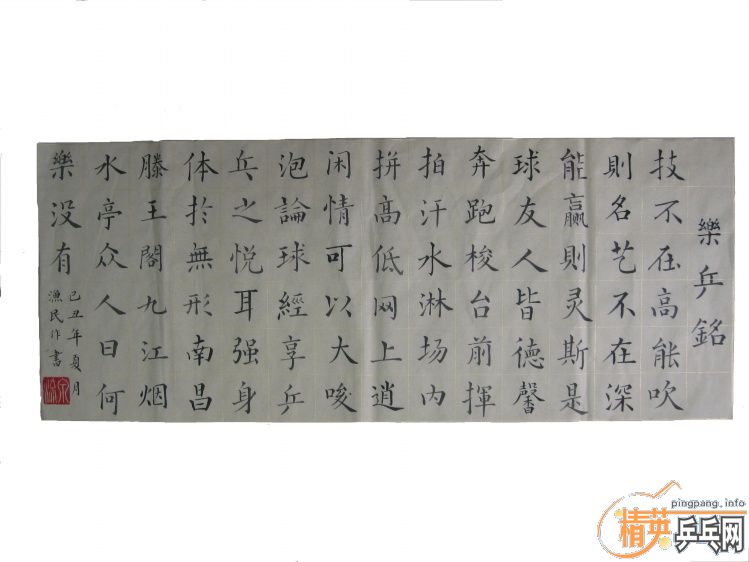 樂乒銘
技不在高能吹
則名艺不在深
能赢則灵斯是
球友人皆德馨
奔跑梭台前揮
拍汗水淋场内
拼高低网上逍
闲情可以大唆
泡論球經享乒
乓之悦耳强身
体於無形南昌
滕王閣九江烟
水亭众人曰何
樂没有
己丑年夏月
漁民作書
pingpang.info
精英乒乓网